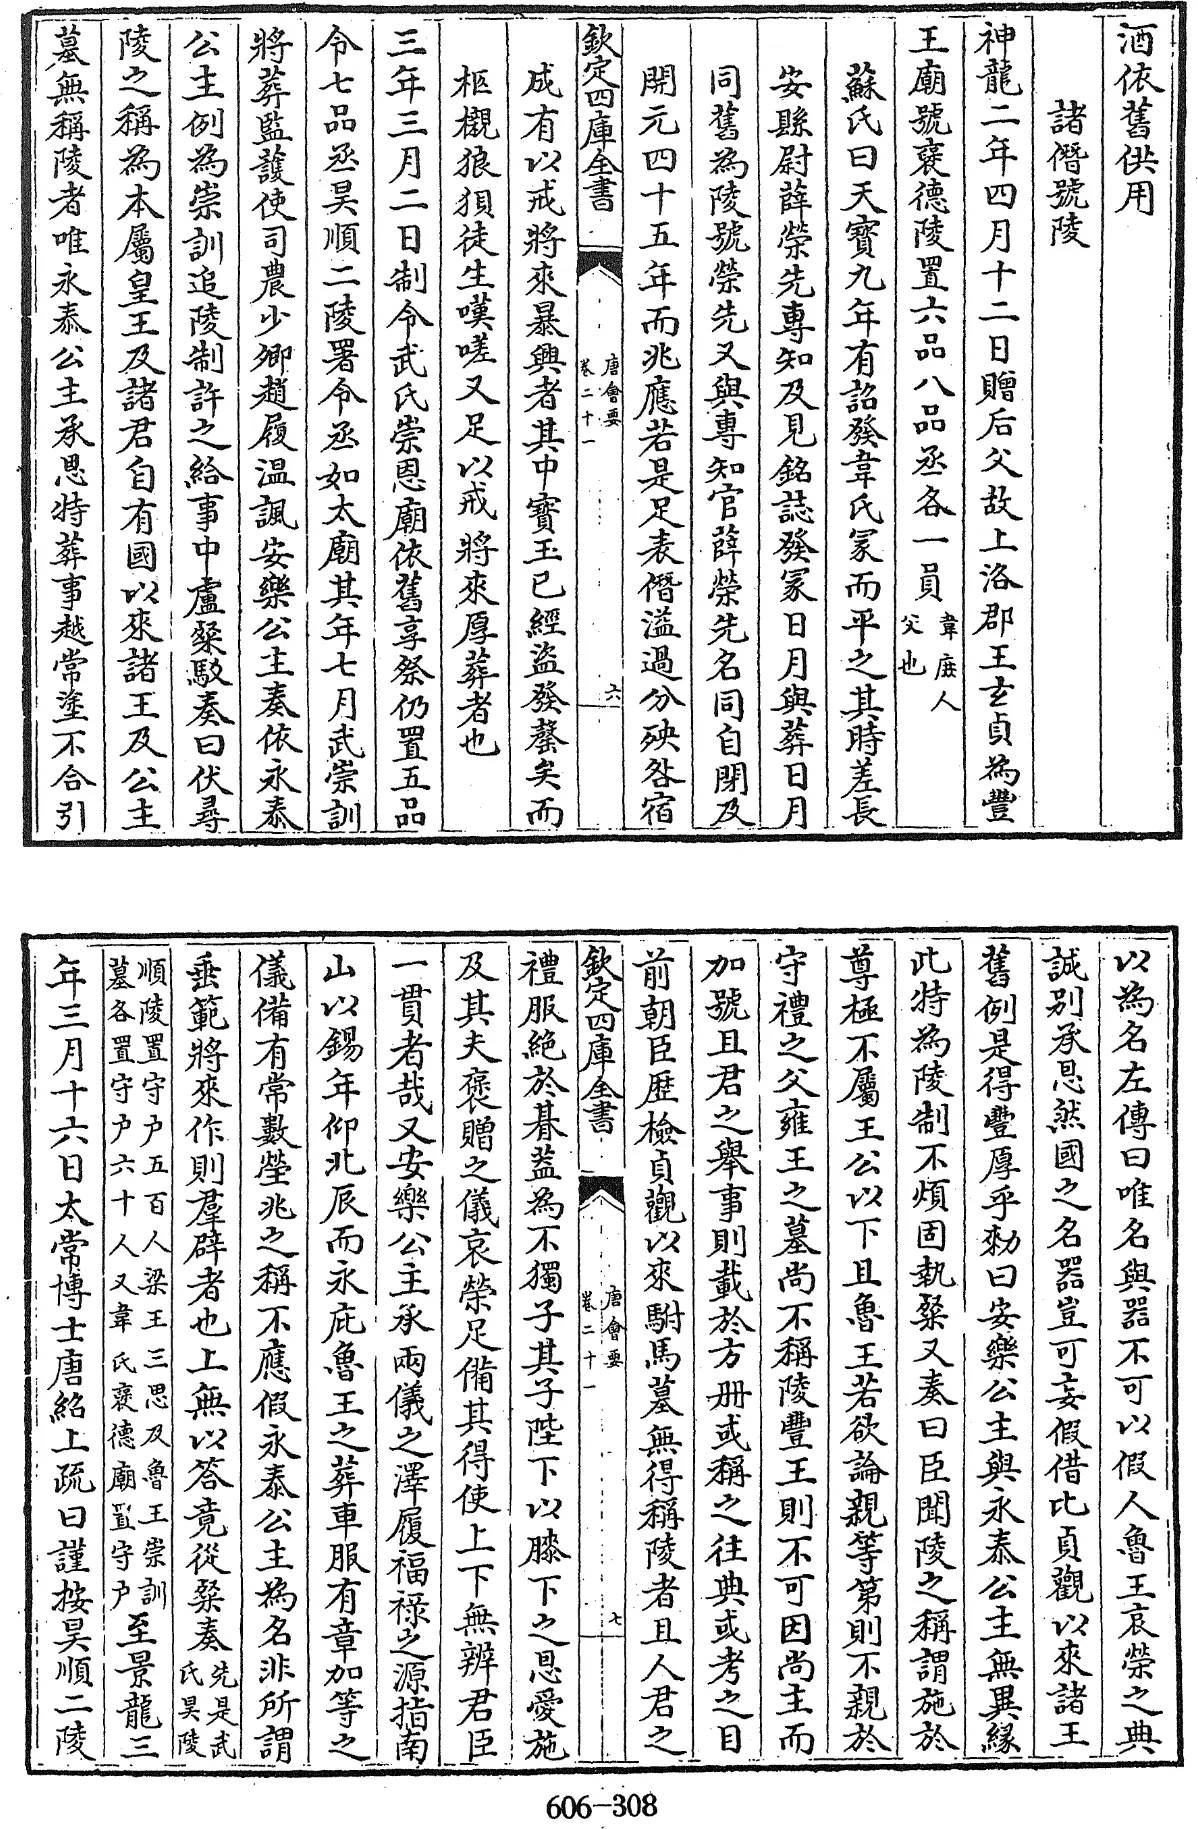 酒依舊供用
諸僭號陵
神龍二年四月十二日贈后父故上洛郡王玄貞為豐
王廟號襃德陵置六品八品丞各一員韋庶人父也
蘇氏曰天寶九年有詔發韋氏冡而平之其時差長
安縣尉薛榮先專知及見銘誌發冡日月與葬日月
同舊為陵號榮先又與專知官薛榮先名同自閉及
開元四十五年而兆應若是足表僭溢過分殃咎宿
欽定四庫全書
唐會要
卷二十一
六
成有以戒將來暴興者其中寶玉已經盜發罄矣而
柩櫬狼狽徒生嘆嗟又足以戒將來厚葬者也
三年三月二日制令武氏崇恩廟依舊享祭仍置五品
令七品丞昊順二陵署令丞如太廟其年七月武崇訓
將葬監護使司農少卿趙履溫諷安樂公主奏依永泰
公主例為崇訓造陵制許之給事中盧粲駮奏曰伏尋
陵之稱為本屬皇王及諸君自有國以來諸王及公主
墓無稱陵者唯永泰公主承恩特葬事越常塗不合引
以為名左傳曰唯名與器不可以假人魯王哀榮之典
誠別承恩然國之名器豈可妄假借比貞觀以來諸王
舊例是得豐厚乎勑曰安樂公主與永泰公主無異緣
此特為陵制不煩固執粲又奏曰臣聞陵之稱謂施於
尊極不屬王公以下且魯王若欲論親等第則不親於
守禮之父雍王之墓尚不稱陵豐王則不可因尚主而
加號且君之舉事則載於方冊或稱之往典或考之目
前朝臣歷檢貞觀以來駙馬墓無得稱陵者且人君之
欽定四庫全書
唐會要
卷二十一
七
禮服絶於朞葢為不獨子其子陛下以膝下之恩愛施
及其夫褒贈之儀哀榮足備其得使上下無辨君臣
一貫者哉又安樂公主承兩儀之澤履福祿之源指南
山以錫年仰北辰而永庇魯王之葬車服有章加等之
儀備有常數塋兆之稱不應假永泰公主為名非所謂
垂範將來作則羣辟者也上無以答竟從粲奏先是武氏昊陵
順陵置守户五百人梁王三思及魯王崇訓墓各置守户六十人又韋氏襃德廟置守户至景龍三
年三月十六日太常博士唐紹上疏曰謹按昊順二陵
606-308